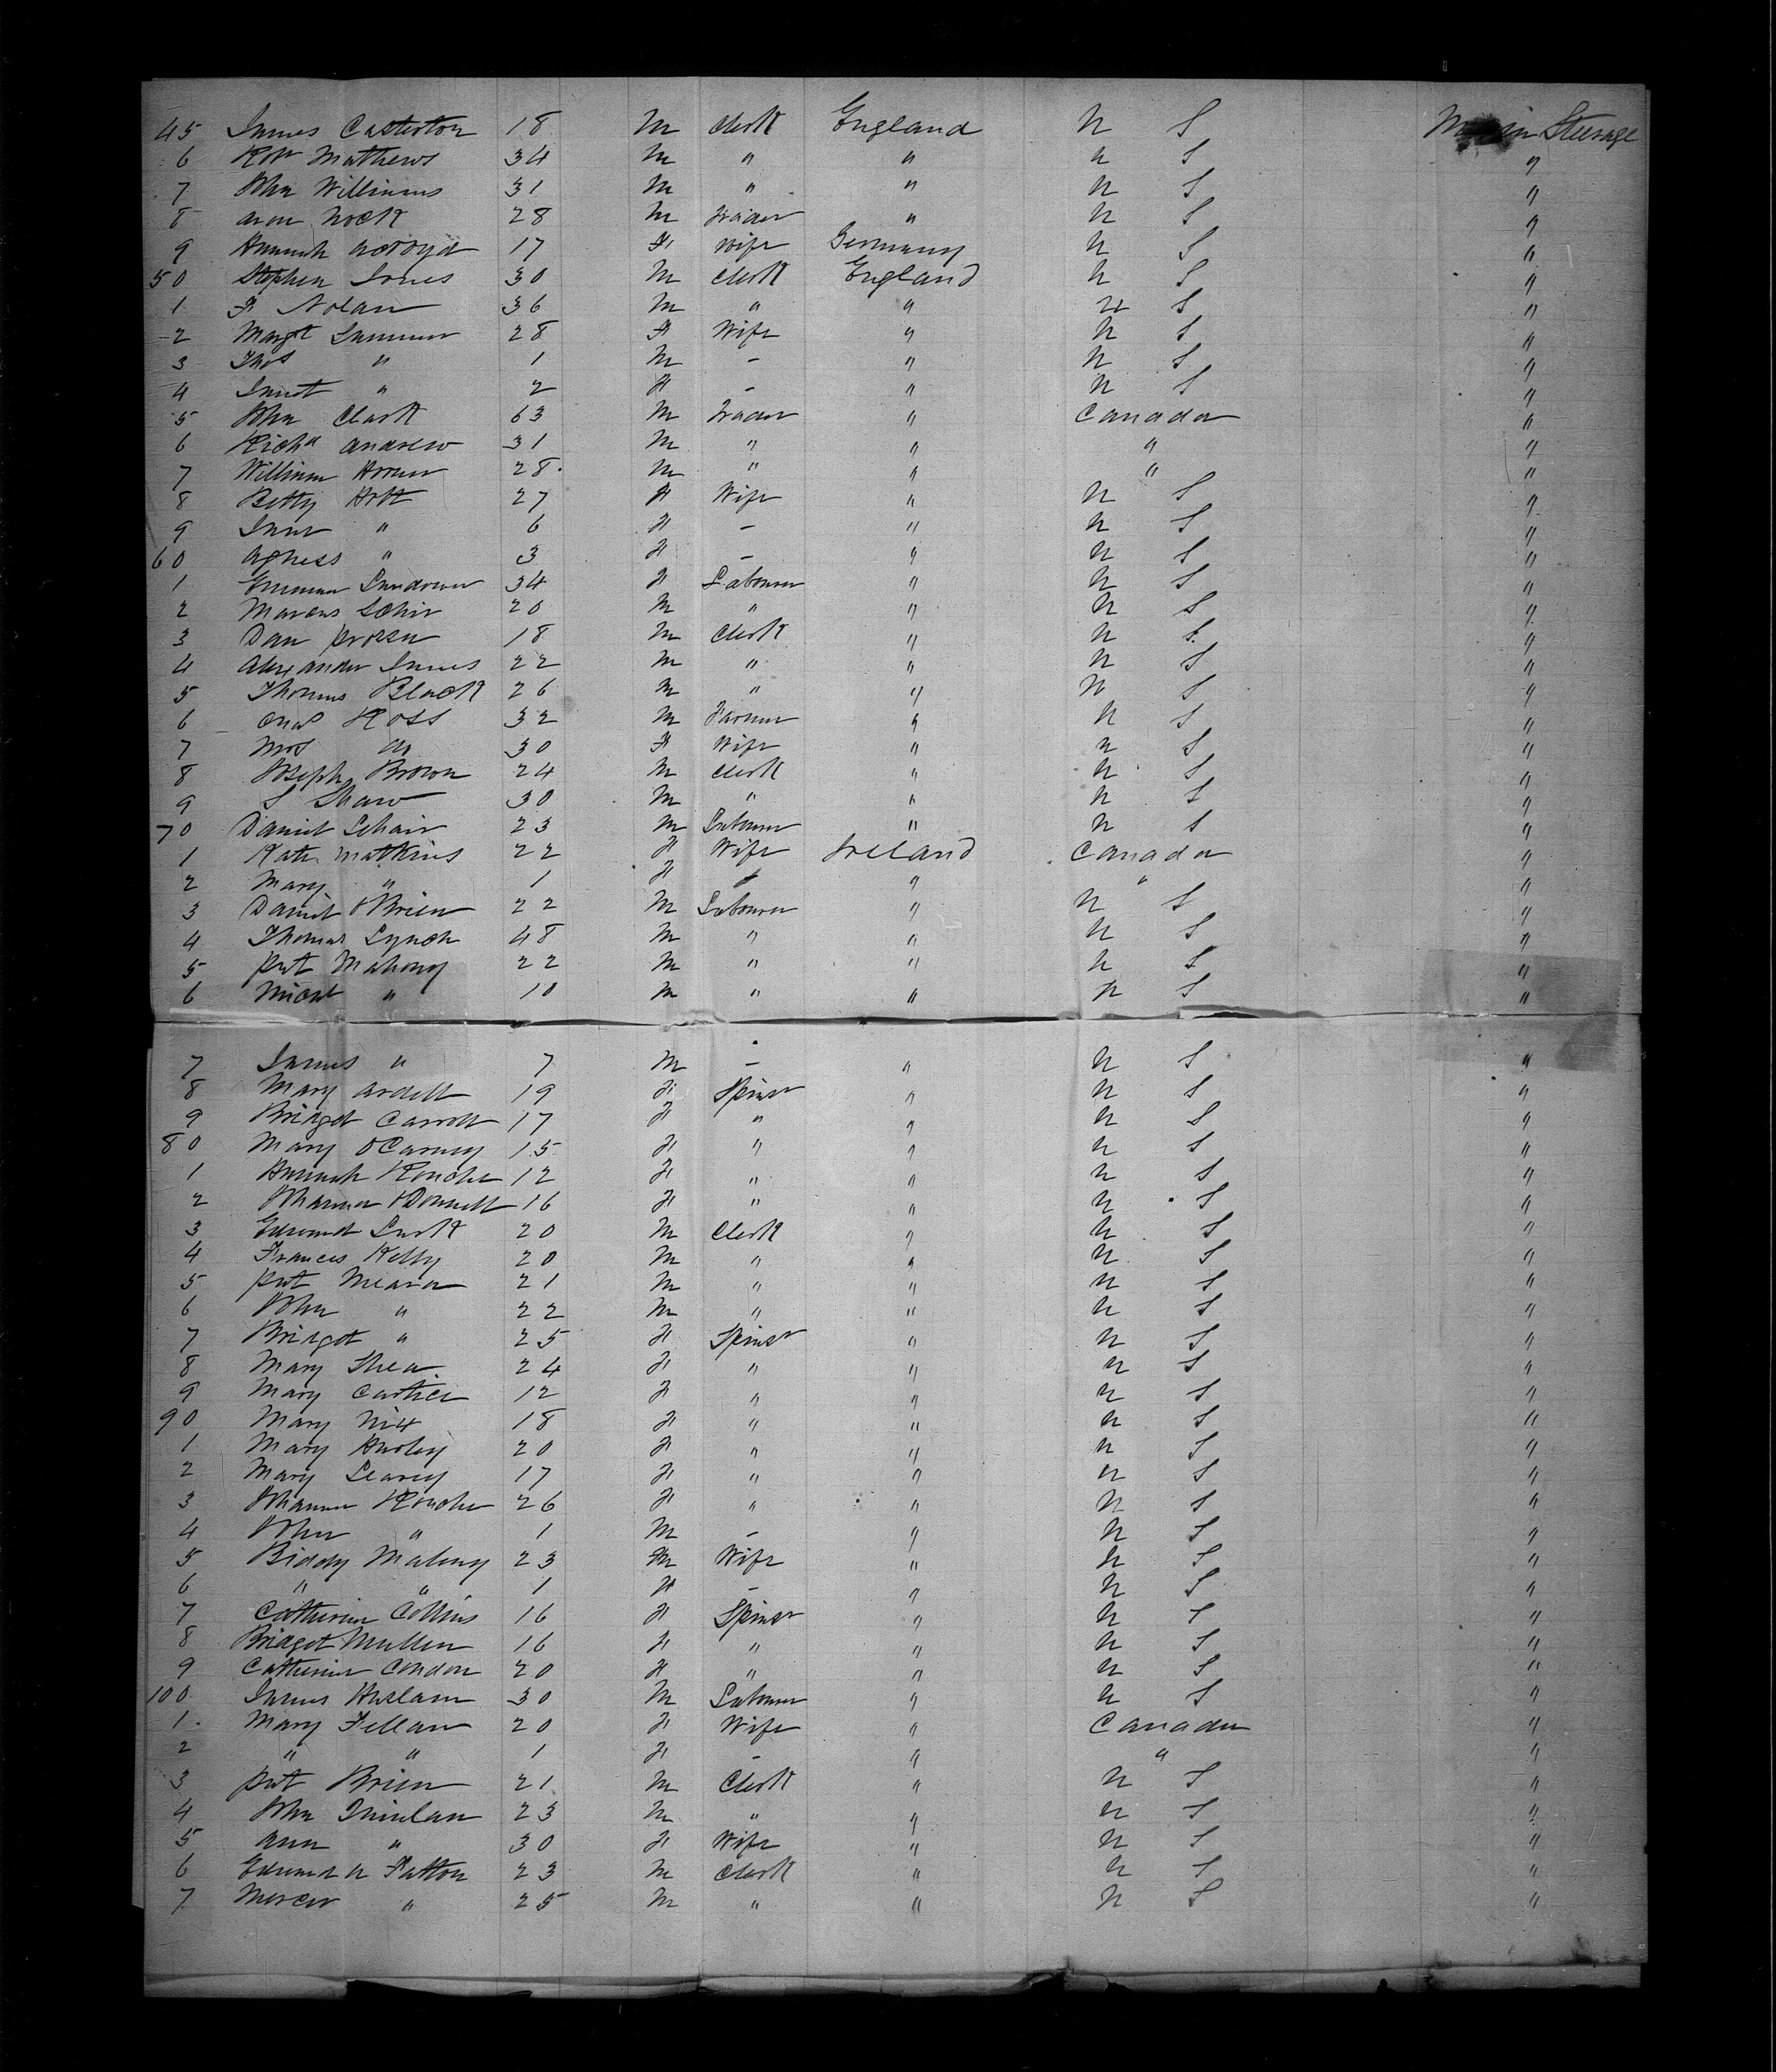 45 James Casterton 18 M Clerk England U S Main Steerage
6 Robt Mathews 34 M " " U S "
7 John Williams 31 M " " U S "
8 Aron Nock 28 M Trader " U S "
9 Hannah Acroyd 17 F Wife Germany U S "
50 Stephen Jones 30 M Clerk England U S "
1 F Nolan 36 M " " U S "
2 Margt 28 F Wife " U S "
3 Thos " 1 M - " U S "
4 Janet " 2 F - " U S "
5 John Clark 63 M Trader " Canada "
6 Richd Andrew 31 M " " " "
7 William 28 M " " " "
8 Betty Holt 27 F Wife " U S "
9 Jane " 6 F - " U S "
60 Agness " 3 F - " U S "
1 Emma 34 F Labourer " U S "
2 Marcus 20 M " " U S "
3 Dan 18 M Clerk " U S "
4 Alexander Innes 22 M " " U S "
5 Thomas Black 26 M " " U S "
6 Ross 32 M Farmer " U S "
7 Mrs do 30 F Wife " U S "
8 Joseph Brown 24 M Clerk " U S "
9 S Shaw 30 M " " U S "
70 Daniel Schair 23 M Labourer " U S "
1 Kate Matkins 22 F Wife Ireland Canada "
2 Mary " 1 F - " " "
3 Daniel OBrien 22 M Labourer " U S "
4 Thomas Lynch 48 M " " U S "
5 Pat Mahony 22 M " " U S "
6 Michl " 10 M " " U S "
7 James " 7 M - " U S "
8 Mary Ardell 19 F Spinsr " U S "
9 Bridget Carroll 17 F " " U S "
80 Mary OCarney 15 F " " U S "
1 Hannah Rouche 12 F " " U S "
2 Johanna ODonnell 16 F " " U S "
3 Edmund Lusk 20 M Clerk " U S "
4 Frances Kelly 20 M " " U S "
5 Pat Meara 21 M " " U S "
6 John " 22 M " " U S "
7 Bridget " 25 F Spinsr " U S "
8 Mary Shea 24 F " " U S "
9 Mary 12 F " " U S "
90 Mary Nix 18 F " " U S "
1 Mary Hurley 20 F " " U S "
2 Mary Learey 17 F " " U S "
3 Johanna Rouche 26 F " " U S "
4 John " 1 M - " U S "
5 Biddy Malony 23 Wife " U S "
6 " " 1 F - " U S "
7 Catherine Collins 16 F Spinsr " U S "
8 Bridget Mullen 16 F " " U S "
9 Catherine Condon 20 F " " U S "
100 James Haslam 30 M Labourer " U S "
1 Mary Fellan 20 F Wife " Canada "
2 " " 1 F - " " "
3 Pat Brien 21 M Clerk " U S "
4 John Quinlan 23 M " " U S "
5 Ann " 30 F Wife " U S "
6 Edmund H Patton 23 M Clerk " U S "
7 Mercer " 25 M " " U S "